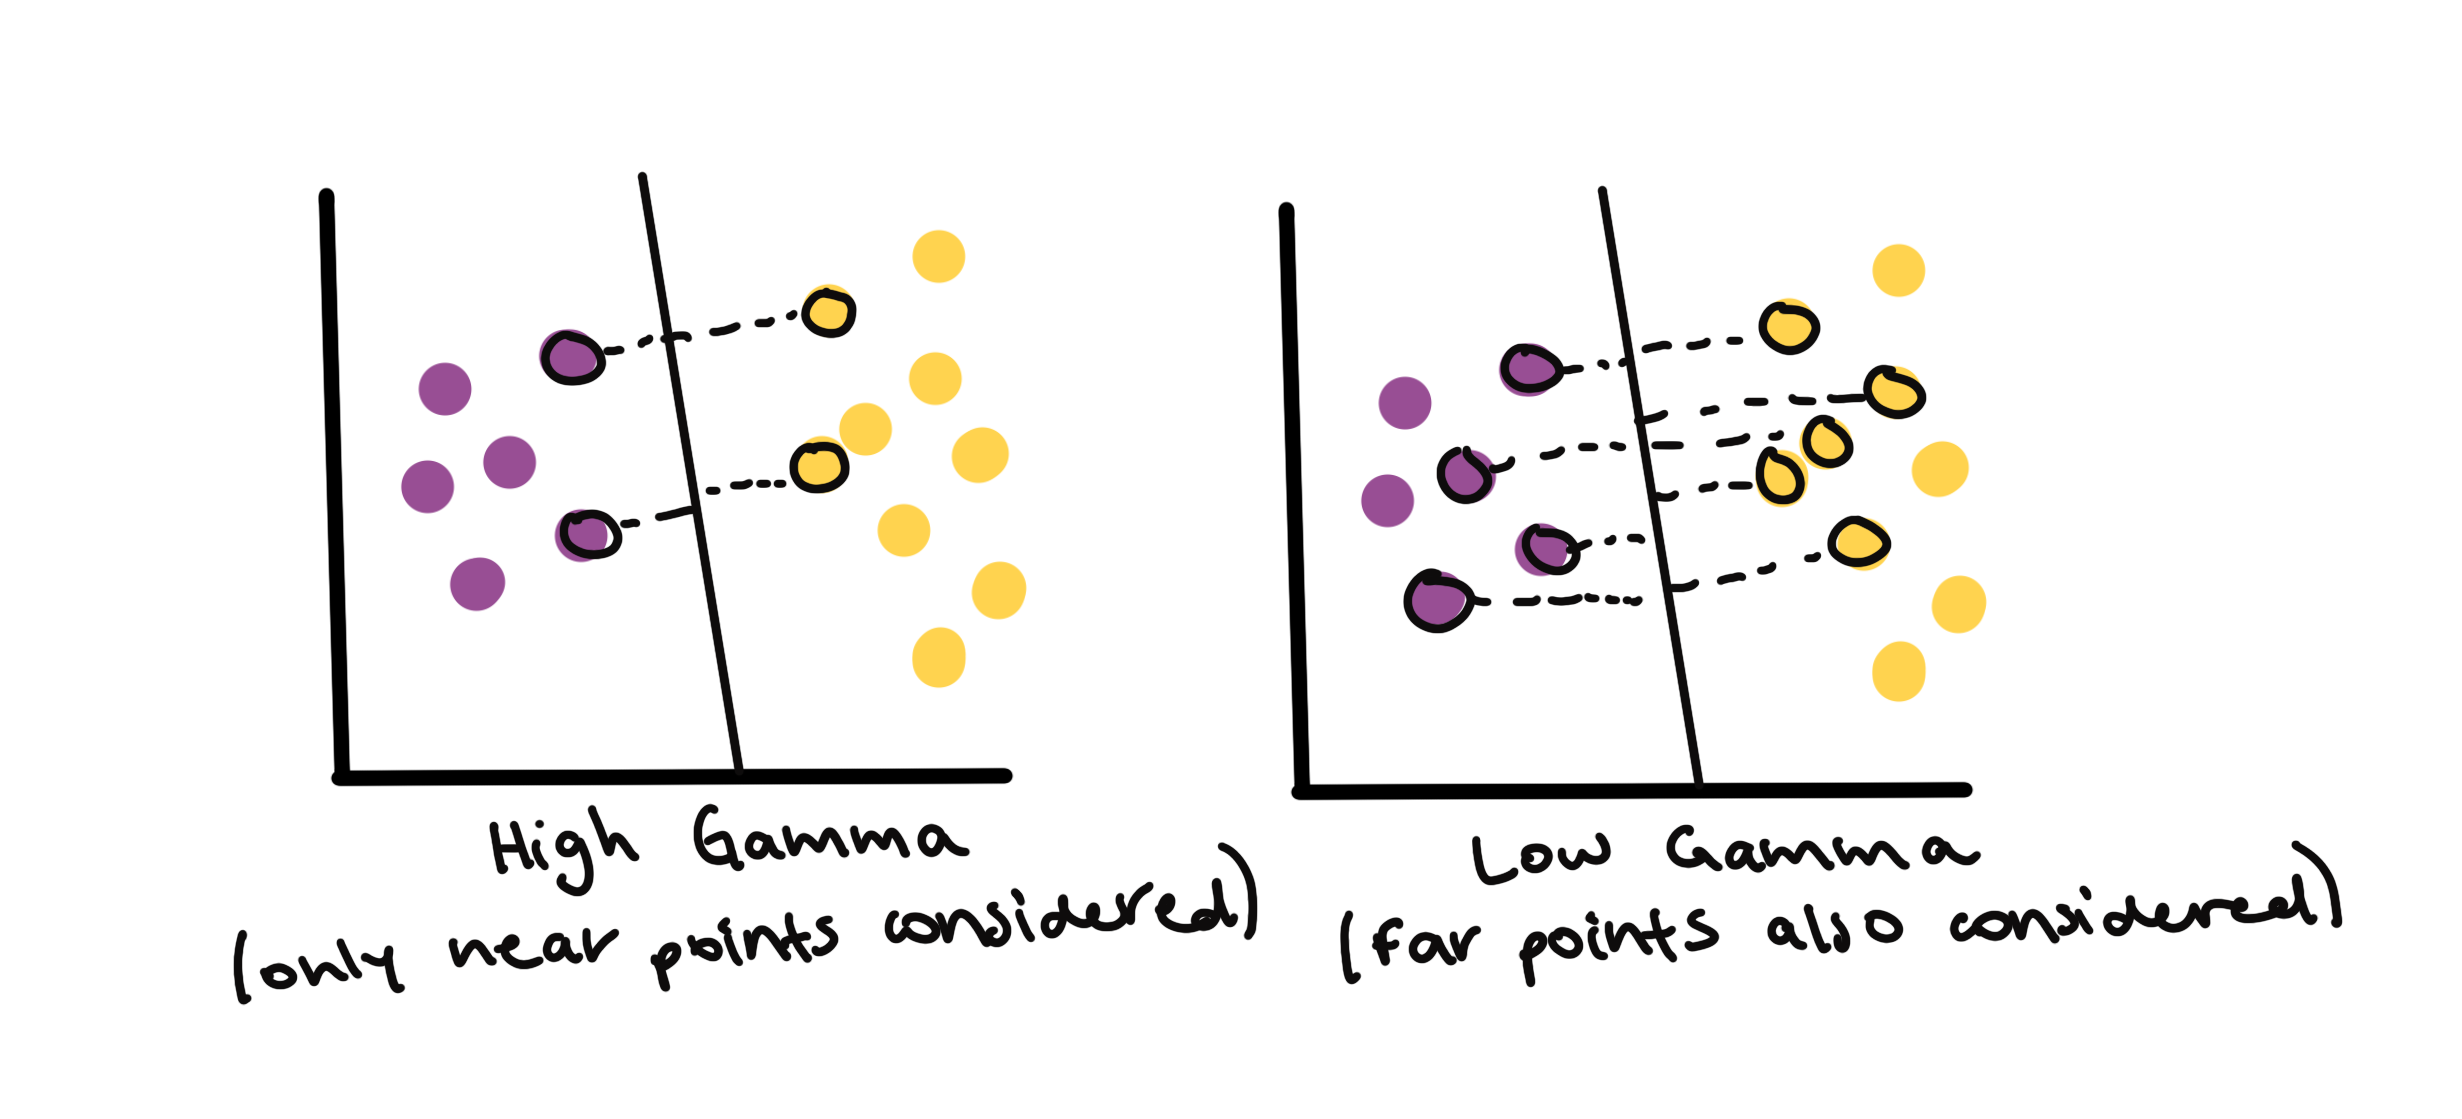 High Gamma
(only near points considered)
Low Gamma
(far points also considered)